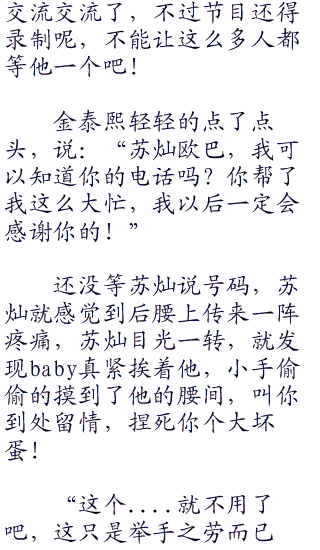 交流交流了，不过节目还得
录制呢，不能让这么多人都
等他一个吧！
金泰熙轻轻的点了点
头，说：“苏灿欧巴，我可
以知道你的电话吗？你帮了
我这么大忙，我以后一定会
感谢你的！”
还没等苏灿说号码，苏
灿就感觉到后腰上传来一阵
疼痛，苏灿目光一转，就发
现baby真紧挨着他，小手偷
偷的摸到了他的腰间，叫你
到处留情，捏死你个大坏
蛋！
“这个....就不用了
吧，这只是举手之劳而已